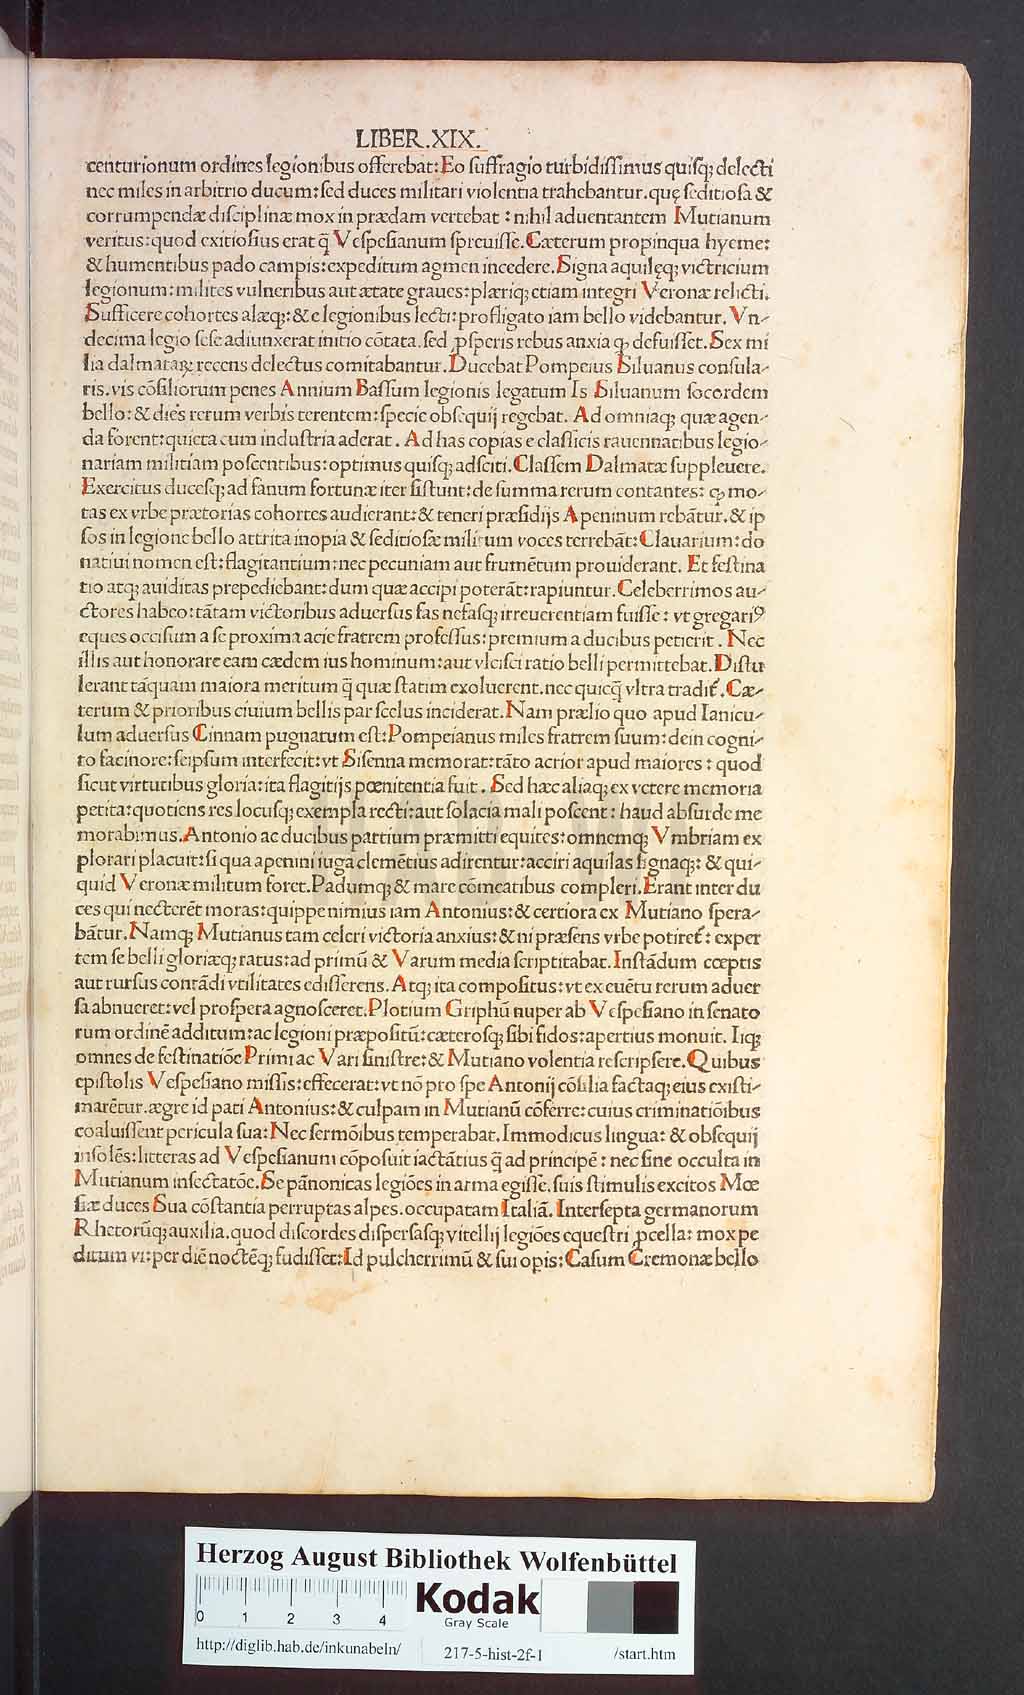 LIBER.XIX.
centurionum ordines legionibus offerebat: Eo suffragio turbidissimus quisq; delecti
nec miles in arbitrio ducum: sed duces militari violentia trahebantur. quę seditiosa &
corrumpendæ disciplinæ mox in prædam vertebat: nihil aduentantem Mutianum
veritus: quod exitiosius erat q̃ Vespesianum spreuisse. Cæterum propinqua hyeme:
& humentibus pado campis: expeditum agmen incedere. Signa aquilęq; victricium
legionum: milites vulneribus aut ætate graues: plæriq; etiam integri Veronæ relicti.
Sufficere cohortes alæq;: & e legionibus lecti: profligato iam bello videbantur. Vn-
decima legio sese adiunxerat initio cõtata. sed ꝓsperis rebus anxia ꝙ defuisset. Sex mi
lia dalmataꝝ: recens delectus comitabantur. Ducebat Pompeius Siluanus consula-
ris. vis cõsiliorum penes Annium Bassum legionis legatum Is Siluanum socordem
bello: & dies rerum verbis terentem: specie obsequij regebat. Ad omniaq; quæ agen-
da forent: quieta cum industria aderat. Ad has copias e classicis rauennatibus legio-
nariam militiam poscentibus: optimus quisq; adsciti. Classem Dalmatæ suppleuere.
Exercitus ducesq; ad fanum fortunæ iter sistunt: de summa rerum contantes: ꝙ mo-
tas ex vrbe prætorias cohortes audierant: & teneri præsidijs Apeninum rebãtur. & ip
sos in legione bello attrita inopia & seditiosæ militum voces terrebãt: Clauarium: do
natiui nomen est: flagitantium: nec pecuniam aut frumẽtum prouiderant. Et festina
tio atq; auiditas prepediebant: dum quæ accipi poterãt: rapiuntur. Celeberrimos au-
ctores habeo: tãtam victoribus aduersus fas nefasq; irreuerentiam fuisse: vt gregariꝰ
eques occisum a se proxima acie fratrem professus: premium a ducibus petierit. Nec
illis aut honorare eam cædem ius hominum: aut vlcisci ratio belli permittebat. Distu
lerant tãquam maiora meritum q̃ quæ statim exoluerent. nec quicq̃ vltra tradit͛. Cæ-
terum & prioribus ciuium bellis par scelus inciderat. Nam prælio quo apud Ianicu-
lum aduersus Cinnam pugnatum est: Pompeianus miles fratrem suum: dein cogni-
to facinore: seipsum interfecit: vt Sisenna memorat: tãto acrior apud maiores: quod
sicut virtutibus gloria: ita flagitijs pœnitentia fuit. Sed hæc aliaq; ex vetere memoria
petita: quotiens res locusq; exempla recti: aut solacia mali poscent: haud absurde me
morabimus. Antonio ac ducibus partium præmitti equites: omnemq; Vmbriam ex
plorari placuit: si qua apenini iuga clemẽtius adirentur: acciri aquilas signaq;: & qui-
quid Veronæ militum foret. Padumq; & mare cõmeatibus compleri. Erant inter du
ces qui necterẽt moras: quippe nimius iam Antonius: & certiora ex Mutiano spera-
bãtur. Namq; Mutianus tam celeri victoria anxius: & ni præsens vrbe potiret͛: exper
tem se belli gloriæq; ratus: ad primũ & Varum media scriptitabat. Instãdum cœptis
aut rursus contãdi vtilitates edisserens. Atq; ita compositus: vt ex euẽtu rerum aduer
sa abnueret: vel prospera agnosceret. Plotium Griphũ nuper ab Vespesiano in senato
rum ordinẽ additum: ac legioni præpositũ: cæterosq; sibi fidos: apertius monuit. Iiq;
omnes de festinatiõe Primi ac Vari sinistre: & Mutiano volentia rescripsere. Quibus
epistolis Vespesiano missis: effecerat: vt nõ pro spe Antonij cõsilia factaq; eius existi-
marẽtur. ægre id pati Antonius: & culpam in Mutianũ cõferre: cuius criminatiõibus
coaluissent pericula sua: Nec sermõibus temperabat. Immodicus lingua: & obsequij
insolẽs: litteras ad Vespesianum cõposuit iactãtius q̃ ad principẽ: nec sine occulta in
Mutianum insectatõe. Se pãnonicas legiões in arma egisse. suis stimulis excitos Mœ
siæ duces Sua cõstantia perruptas alpes. occupatam Italiã. Intersepta germanorum
Rhetorũq; auxilia. quod discordes dispersasq; vitellij legiões equestri ꝓcella: mox pe
ditum vi: per diẽ noctẽq; fudisset: Id pulcherrimũ & sui opis: Casum Cremonæ bello
Herzog August Bibliothek Wolfenbüttel
0 1 2 3 4
Kodak
Gray Scale
http://diglib.hab.de/inkunabeln/ 217-5-hist-2f-1 /start.htm